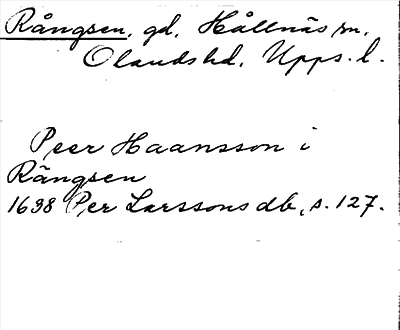 Rångsen, gd, Hållnäs sn,
Olands hd, Upps. l.
Peer Haansson i
Rångsen
1638 Per Larssons db, s. 127.